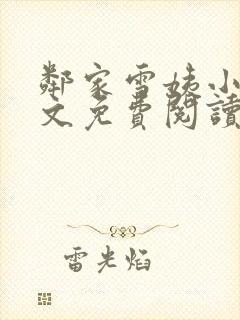 鄰家雪姨小
文免費閱讀
雷光焰